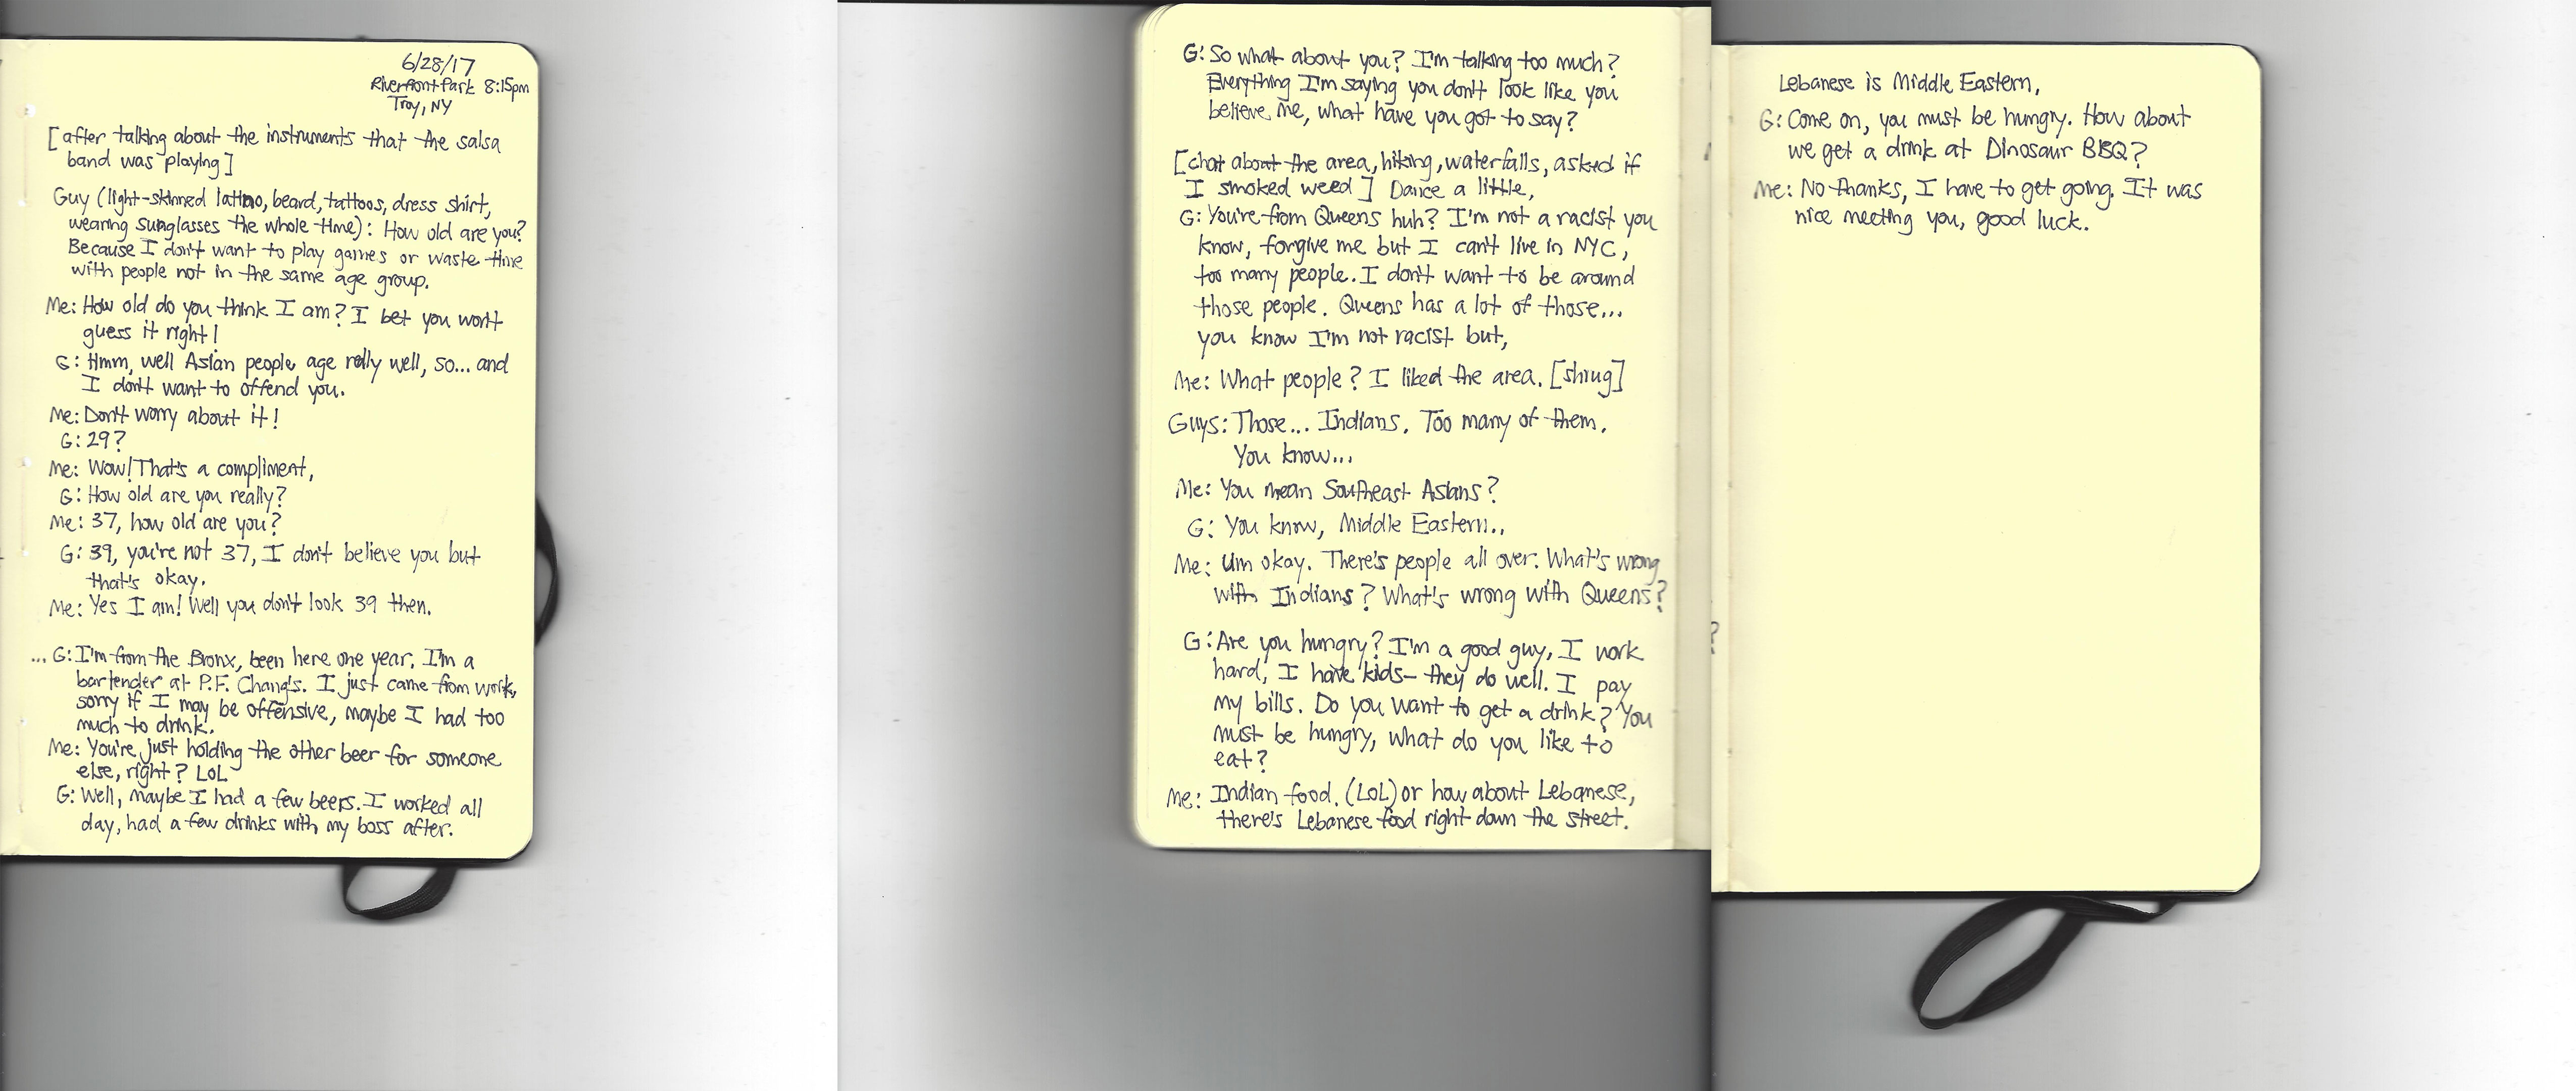 6/28/17
Riverfront Park 8:15pm
Troy, NY
[after talking about the instruments that the salsa
band was playing]
Guy (light-skinned latino, beard, tattoos, dress shirt,
wearing sunglasses the whole time): How old are you?
Because I don't want to play games or waste time
with people not in the same age group.
Me: How old do you think I am? I bet you won't
guess it right!
G: Hmm, well Asian people age really well, so... and
I don't want to offend you.
Me: Don't worry about it!
G: 29?
Me: Wow! That's a compliment,
G: How old are you really?
Me: 37, how old are you?
G: 39, you're not 37, I don't believe you but
that's okay.
Me: Yes I am! Well you don't look 39 then.
... G: I'm from the Bronx, been here one year. I'm a
bartender at P.F. Chang's. I just came from work,
sorry if I may be offensive, maybe I had too
much to drink.
Me: You're just holding the other beer for someone
else, right? LOL
G: Well, maybe I had a few beers. I worked all
day, had a few drinks with my boss after.
G: So what about you? I'm talking too much?
Everything I'm saying you don't look like you
believe me, what have you got to say?
[chat about the area, hiking, waterfalls, asked if
I smoked weed] Dance a little,
G: You're from Queens huh? I'm not a racist you
know, forgive me but I can't live in NYC,
too many people. I don't want to be around
those people. Queens has a lot of those...
you know I'm not racist but,
Me: What people? I liked the area. [shrug]
Guys: Those... Indians. Too many of them.
You know...
Me: You mean Southeast Asians?
G: You know, Middle Eastern..
Me: Um okay. There's people all over. What's wrong
with Indians? What's wrong with Queens?
G: Are you hungry? I'm a good guy, I work
hard, I have kids- they do well. I pay
my bills. Do you want to get a drink? You
must be hungry, what do you like to
eat?
Me: Indian food. (LOL) or how about Lebanese,
there's Lebanese food right down the street.
Lebanese is Middle Eastern,
G: Come on, you must be hungry. How about
we get a drink at Dinosaur BBQ?
Me: No thanks, I have to get going. It was
nice meeting you, good luck.